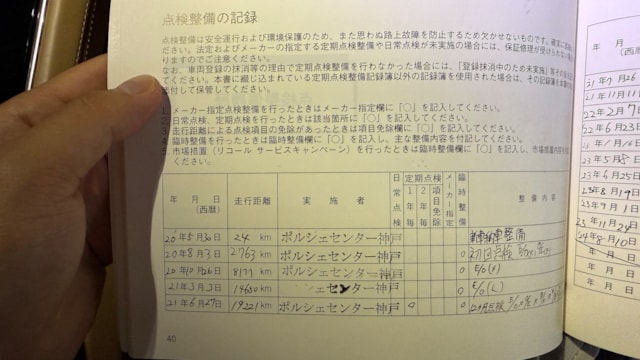 点検整備の記録
点検整備は安全運行および環境保護のため、また思わぬ路上故障を防止するため欠かせないものです。確実に実施
ださい。法定およびメーカーの指定する定期点検整備や日常点検が未実施の場合には、保証修理が受けられない
りますのでご注意ください。
なお、車両登録の抹消等の理由で定期点検整備を行わなかった場合には、「登録抹消中のため未実施」等
ださい。本書に綴じ込まれている定期点検整備記録簿以外の記録簿を使用された場合は、その記録簿を
付して保管してください。
1. メーカー指定点検整備を行ったときはメーカー指定欄に「○」を記入してください。
2. 日常点検、定期点検を行ったときは該当箇所に「○」を記入してください。
3. 走行距離による点検項目の免除があったときは項目免除欄に「○」を記入してください。
4. 臨時整備を行ったときは臨時整備欄に「○」を記入し、主な整備内容を付記してください。
5. 市場措置（リコール サービスキャンペーン）を行ったときは臨時整備欄に「○」を記入し、市場措置内容を
ください。
年 月 日（西暦） 走行距離 実施者 日常点検 定期点検 1年毎 2年毎 項目免除 メーカー指定 臨時整備 整備内容
20年5月30日 24 km ポルシェセンター神戸 整備
20年8月3日 2763 km ポルシェセンター神戸 点検
20年10月26日 8177 km ポルシェセンター神戸 E/O
21年3月3日 14650 km E/O
21年6月27日 19221 km ポルシェセンター神戸 ○ 12ヶ月点検
40
年 月 日
（西暦）
21年11月11
22年2月7
22年6月23
23年5月8
23年6月25
23年8月19
23年9月1
23年11月24
24年8月10
年 月 日
年 月 日
年 月 日